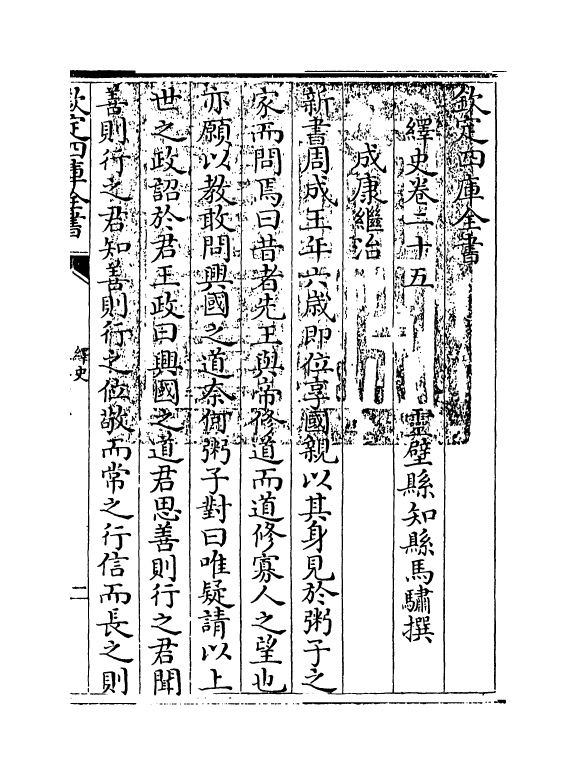 欽定四庫全書
繹史卷二十五
靈壁縣知縣馬驌撰
成康繼治
新書周成王年六歲即位享國親以其身見於粥子之
家而問焉曰昔者先王與帝修道而道修寡人之望也
亦願以教敢問興國之道奈何粥子對曰唯疑請以上
世之政詔於君王政曰興國之道君思善則行之君聞
善則行之君知善則行之位敬而常之行信而長之則
欽定四庫全書
繹史
二